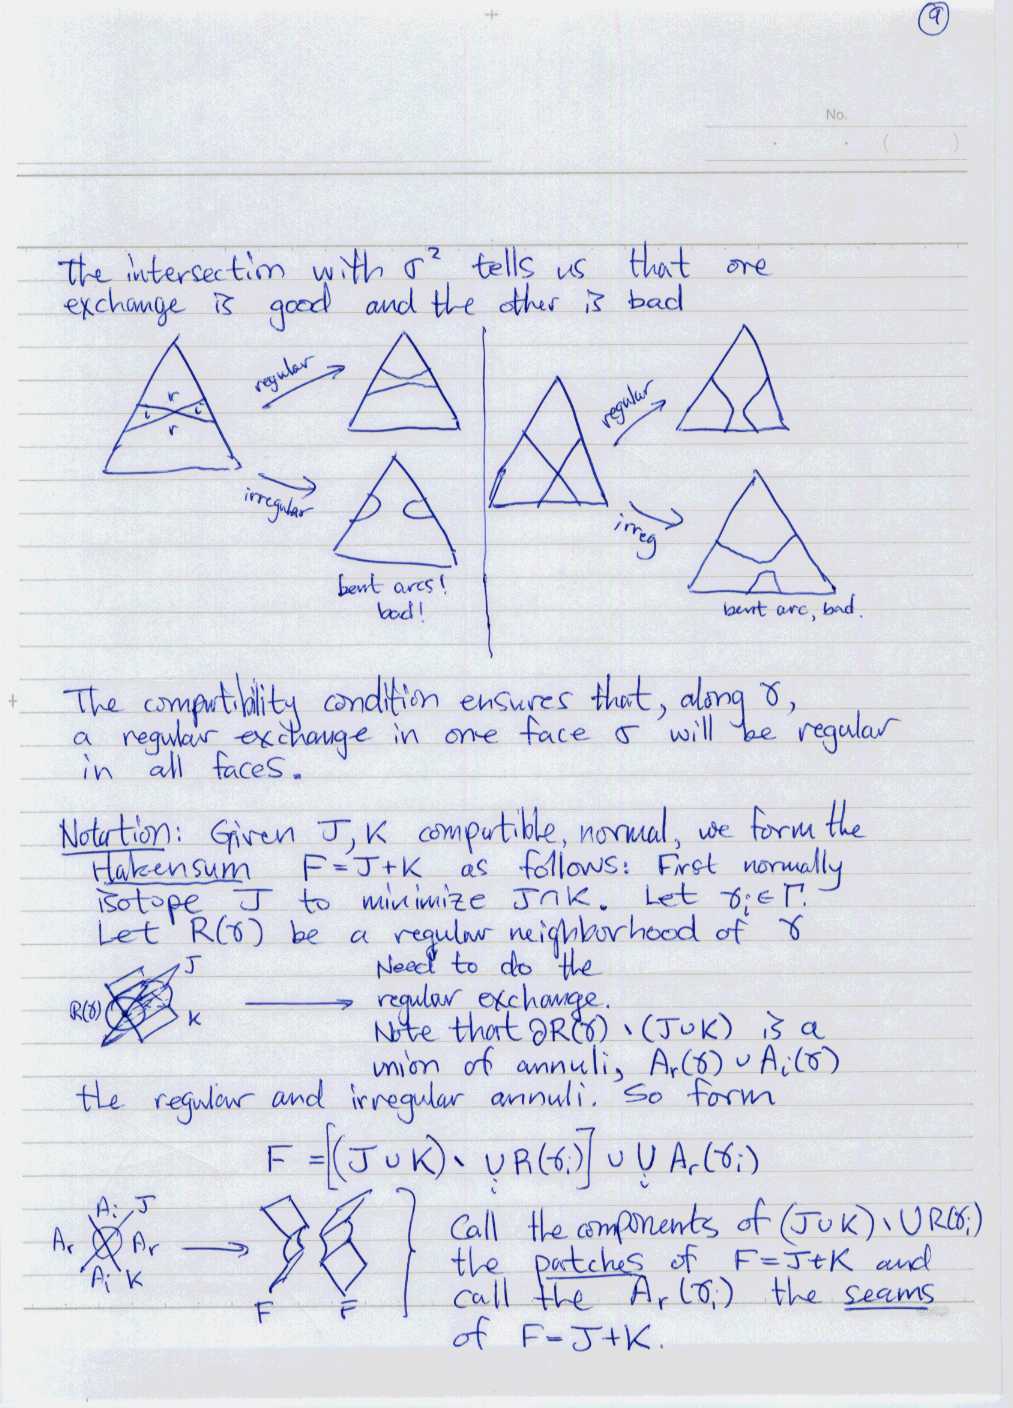 9
No.
( )
The intersection with σ² tells us that one
exchange is good and the other is bad
regular
r
i i
r
irregular
bent arcs!
bad!
regular
irreg
bent arc, bad.
The compatibility condition ensures that, along γ,
a regular exchange in one face σ will be regular
in all faces.
Notation: Given J, K compatible, normal, we form the
Hakensum F = J + K as follows: First normally
isotope J to minimize J∩K. Let γᵢ ∈ Γ.
Let R(γ) be a regular neighborhood of γ
R(γ) J K
Need to do the
regular exchange.
Note that ∂R(γ) \ (J∪K) is a
union of annuli, Aᵣ(γ) ∪ Aᵢ(γ)
the regular and irregular annuli. So form
F = [(J∪K) \ ∪ᵢ R(γᵢ)] ∪ ∪ᵢ Aᵣ(γᵢ)
Aᵢ J
Aᵣ Aᵣ
Aᵢ K
F F
Call the components of (J∪K) \ ∪R(γᵢ)
the patches of F = J+K and
call the Aᵣ(γᵢ) the seams
of F = J+K.